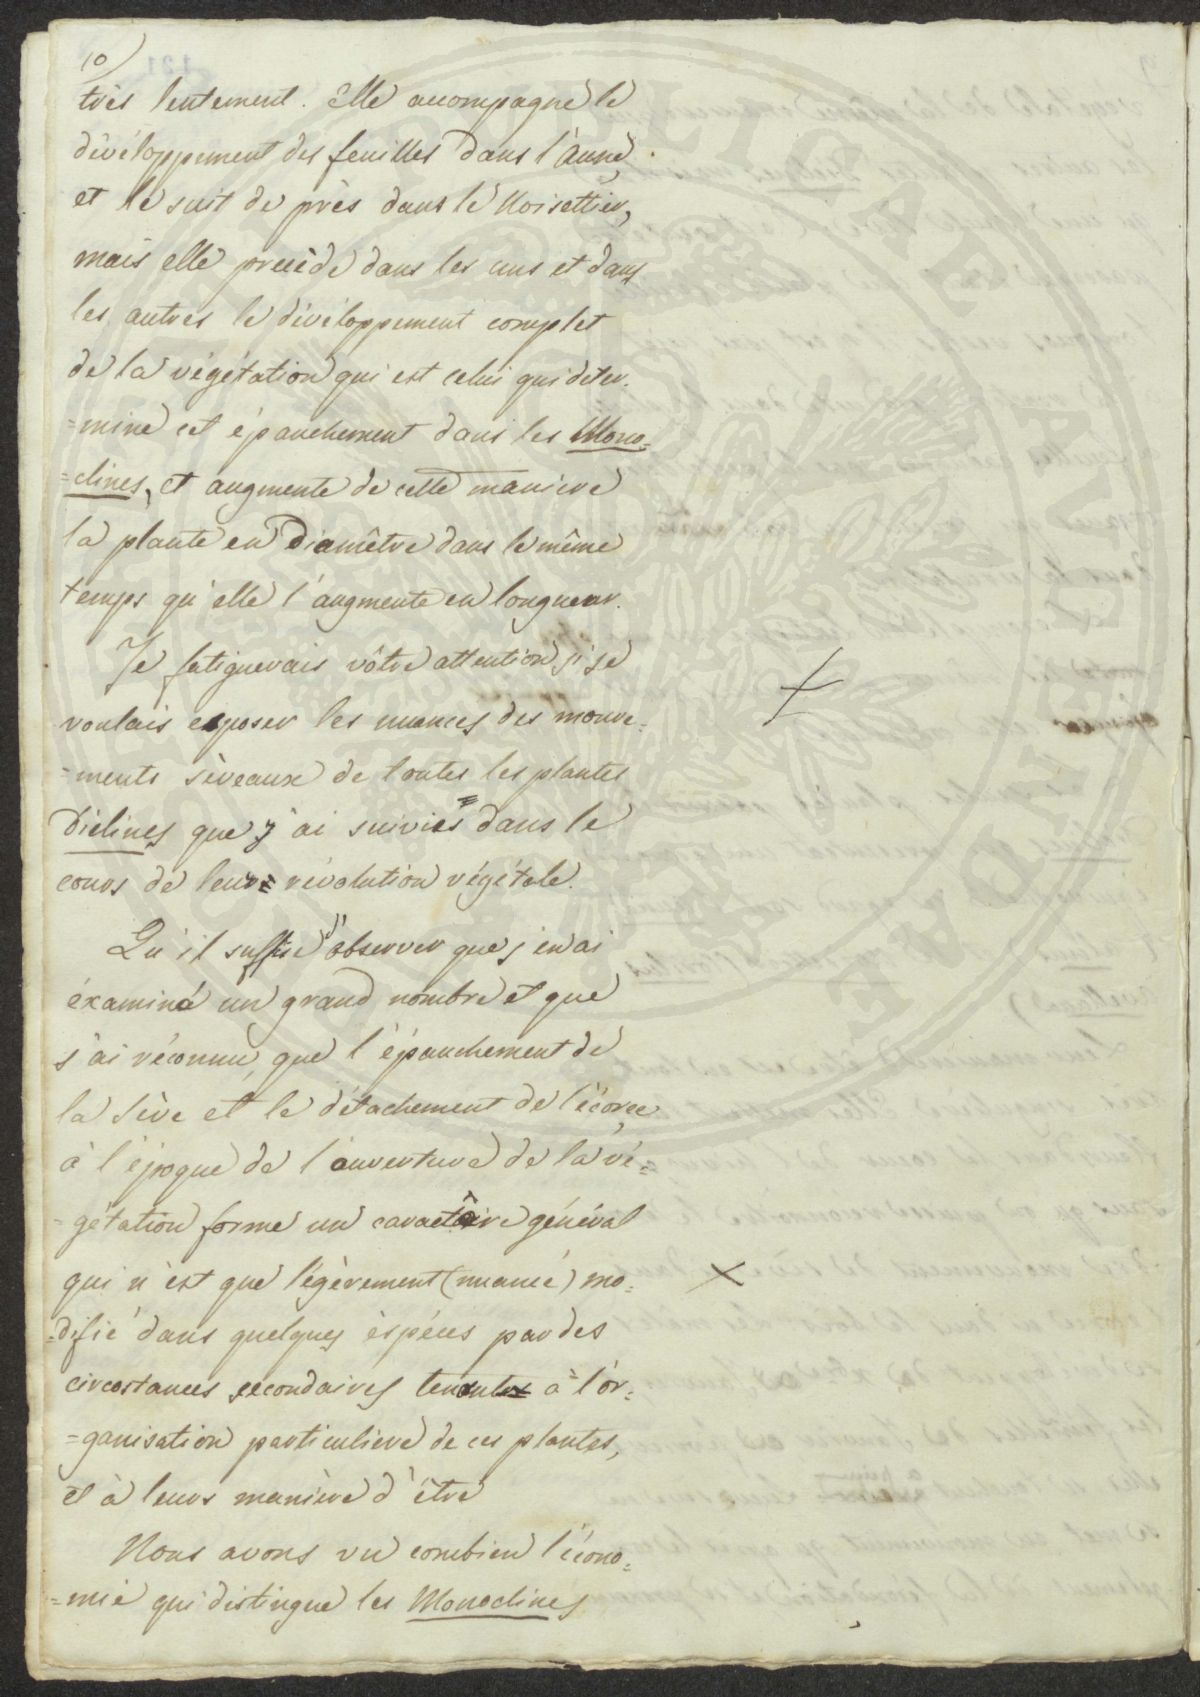 10)
très lentement. Elle accompagne le
dévéloppement des feuilles dans l'Aune,
et le suit de près dans le Noisettier,
mais elle precède dans les uns et dans
les autres le dévéloppement complet
de la végétation qui est celui qui déter-
=mine cet épanchement dans les Mono=
=clines, et augmente de cette maniere
la plante en Diamêtre dans le même
temps qu'elle l'augmente en longueur.
Je fatiguerais vôtre attention si je
voulais exposer les nuances des mouve=
=ments sèveaux de toutes les plantes
Diclines que j'ai suivies dans le
cours de leur révolution végétale.
Qu'il suffise d'observer que j'en ai
éxaminé un grand nombre et que
j'ai réconnu, que l'épanchement de
la Sève et le détachement de l'écorce
à l'époque de l'ouverture de la vé=
=gétation forme un caractère général
qui n'est que légèrement (nuancé) mo=
=difié dans quelques èspéces par des
circostances secondaires tenant à l'or=
=ganisation particuliere de ces plantes,
et à leurs manière d'être
Nous avons vu combien l'écono=
=mie qui distingue les Monoclines